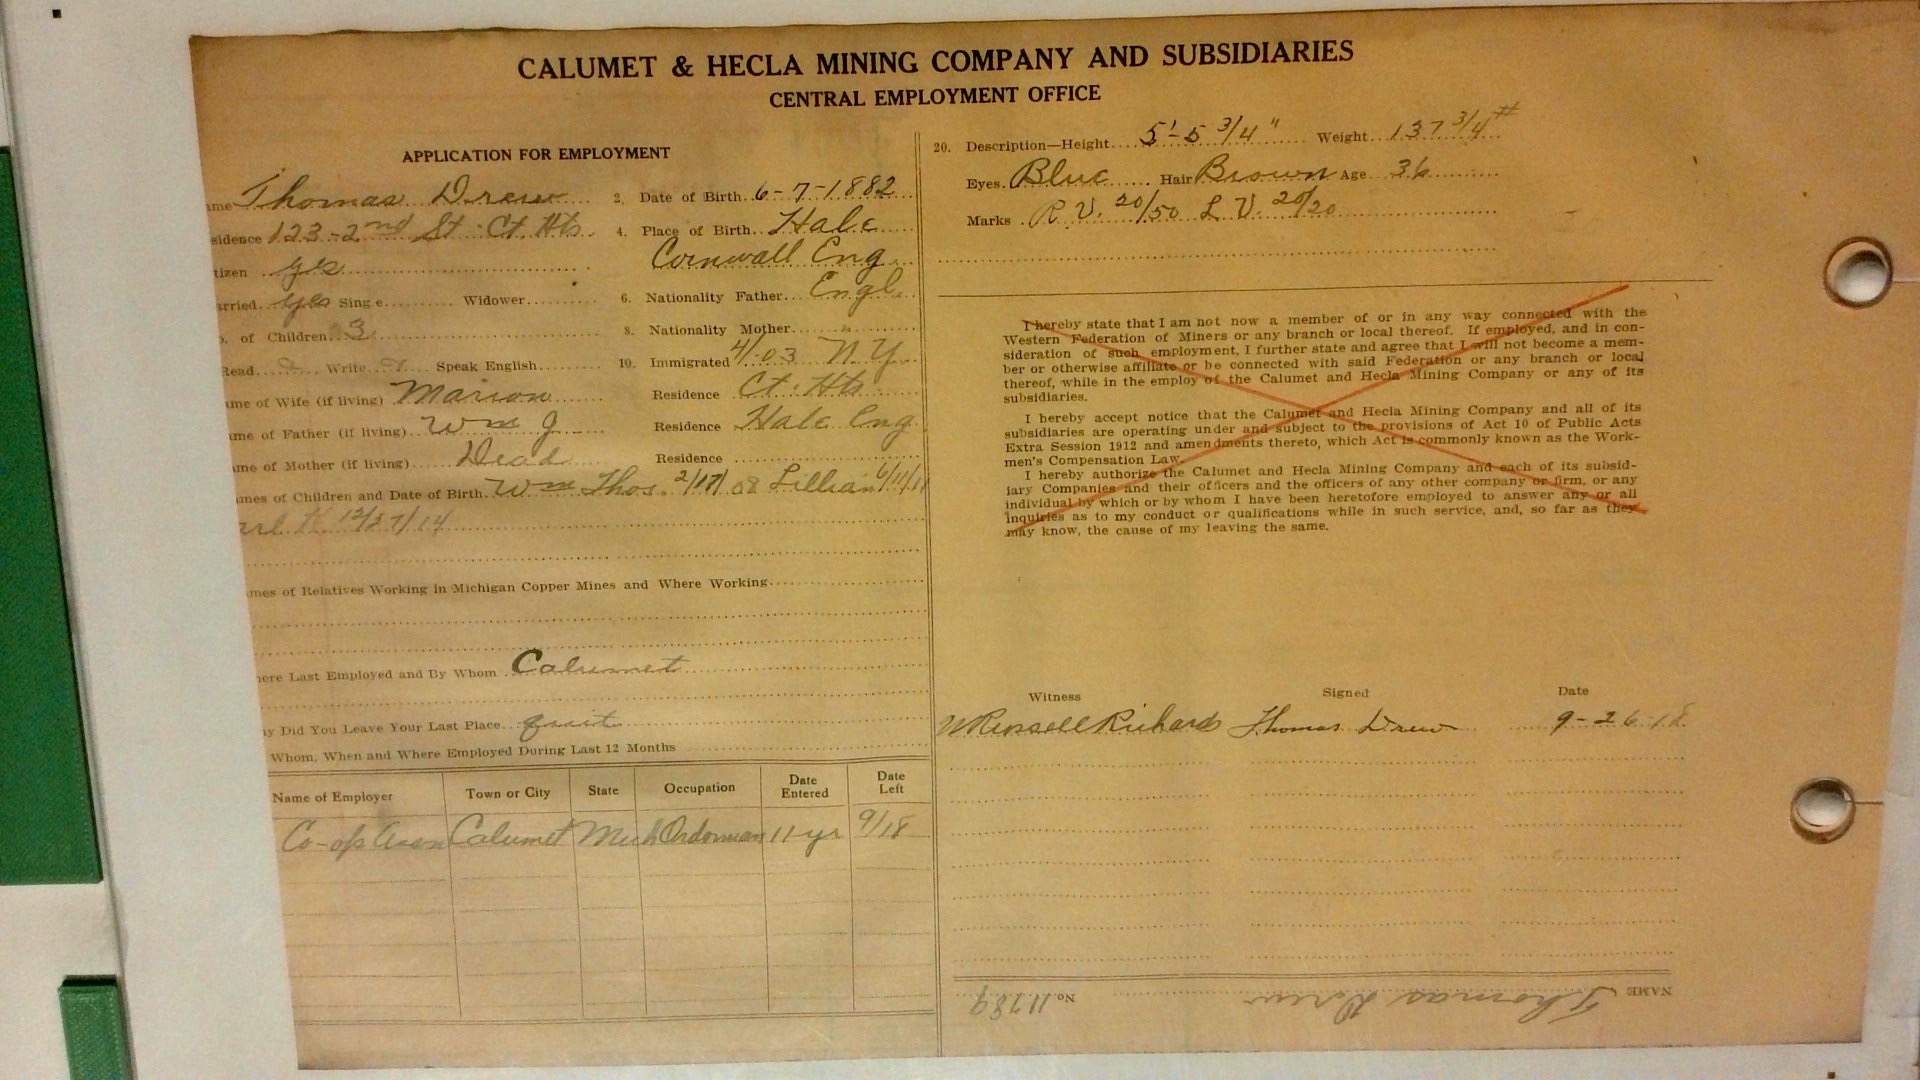 CALUMET & HECLA MINING COMPANY AND SUBSIDIARIES
CENTRAL EMPLOYMENT OFFICE
APPLICATION FOR EMPLOYMENT
ame Thomas Drew 2. Date of Birth 6-7-1882
sidence 123-2nd St Ct. Hts. 4. Place of Birth Hale
tizen yes Cornwall Eng
rried yes Single Widower 6. Nationality Father Engl
. of Children 3 8. Nationality Mother "
Read Write Speak English 10. Immigrated 4/-03 N Y
ame of Wife (if living) Marion Residence Ct. Hts
me of Father (if living) Wm J Residence Hale Eng
me of Mother (if living) Dead Residence
mes of Children and Date of Birth. Wm Thos. 2/17/08 Lillian 6/11/11
arl K 12/27/14
mes of Relatives Working in Michigan Copper Mines and Where Working
ere Last Employed and By Whom Calumet
y Did You Leave Your Last Place quit
Whom, When and Where Employed During Last 12 Months
Name of Employer Town or City State Occupation Date Entered Date Left
Co-op Assn Calumet Mich Orderman 11 yr 9/18
20. Description—Height 5'-5 3/4" Weight 137 3/4 #
Eyes Blue Hair Brown Age 36
Marks R.V. 20/50 L V. 20/20
I hereby state that I am not now a member of or in any way connected with the
Western Federation of Miners or any branch or local thereof. If employed, and in con-
sideration of such employment, I further state and agree that I will not become a mem-
ber or otherwise affiliate or be connected with said Federation or any branch or local
thereof, while in the employ of the Calumet and Hecla Mining Company or any of its
subsidiaries.
I hereby accept notice that the Calumet and Hecla Mining Company and all of its
subsidiaries are operating under and subject to the provisions of Act 10 of Public Acts
Extra Session 1912 and amendments thereto, which Act is commonly known as the Work-
men's Compensation Law.
I hereby authorize the Calumet and Hecla Mining Company and each of its subsid-
iary Companies and their officers and the officers of any other company or firm, or any
individual by which or by whom I have been heretofore employed to answer any or all
inquiries as to my conduct or qualifications while in such service, and, so far as they
may know, the cause of my leaving the same.
Witness Signed Date
W Russell Richards Thomas Drew 9-26-18
NAME Thomas Drew No. 11789